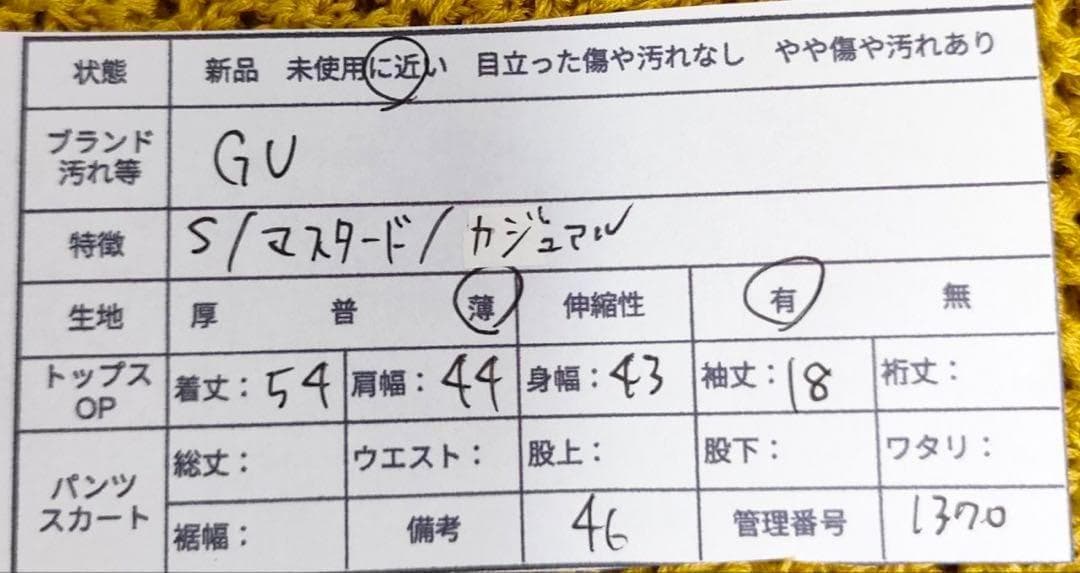 状態 新品 未使用に近い 目立った傷や汚れなし やや傷や汚れあり
ブランド
汚れ等
GU
特徴 S/マスタード/カジュアル
生地 厚 普 薄 伸縮性 有 無
トップス
OP
着丈：54 肩幅：44 身幅：43 袖丈：18 裄丈：
パンツ
スカート
総丈： ウエスト： 股上： 股下： ワタリ：
裾幅： 備考 46 管理番号 1370